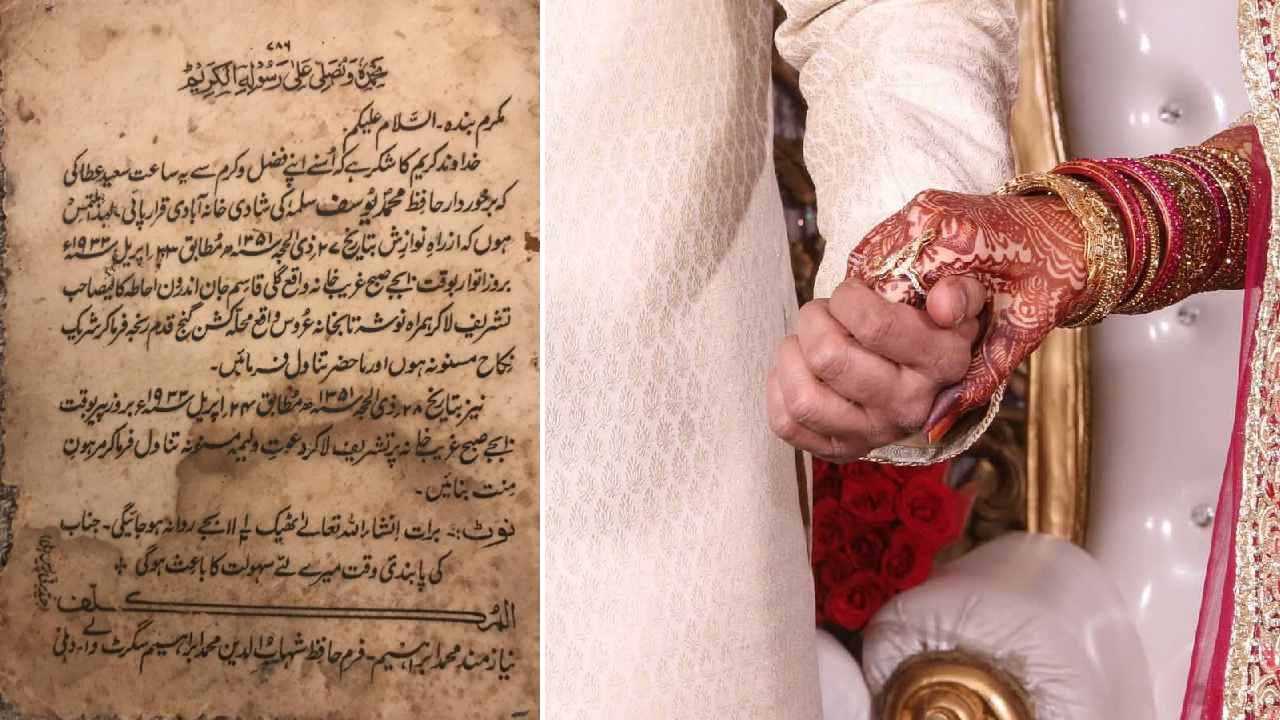 ۷۸۶
نحمدہ و نصلی علیٰ رسولہ الکریم
مکرم بندہ۔ السَّلام علیکم
خداوند کریم کا شکر ہے کہ اُسنے اپنے فضل وکرم سے یہ ساعت سعید عطا کی
کہ برخوردار حافظ محمد یُوسف سلمہ کی شادی خانہ آبادی قرار پائی۔ لہٰذا ملتمس
ہوں کہ ازراہِ نوازش بتاریخ ۲۷؍ذی الحجہ ۱۳۵۱ سنہ ھ مُطابق ۲۳؍اپریل ۱۹۳۳ سنہ ء
بروز اتوار بوقت ۱۰بجے صبح غریب خانہ واقع گلی قاسم جان اندرون احاطہ کالیصاحب
تشریف لاکر ہمراہ نوشہ تابخانہ عُروس واقع محلہ کشن گنج قدم رنجہ فرما کر شریک
نِکاح مسنونہ ہوں اور ماحضر تناول فرمائیں۔
نیز بتاریخ ۲۸؍ذی الحجہ ۱۳۵۱ سنہ ھ مُطابق ۲۴؍اپریل ۱۹۳۳ سنہ ء بروز پیر بوقت
۱۰بجے صبح غریب خانہ پر تشریف لاکر دعوتِ ولیمہ مسنونہ تناول فرما کر مرہونِ
مِنت بنائیں۔
نوٹ:۔ برات اِنشاء اللہ تعالےٰ ٹھیک ۱۱½ بجے روانہ ہوجائیگی۔ جناب
کی پابندی وقت میرے لئے سہولت کا باعث ہوگی
المُکلف
نیازمند محمد ابراہیم۔ فرم حافظ شہاب الدین محمد ابراہیم سگرٹ والے۔ دہلی